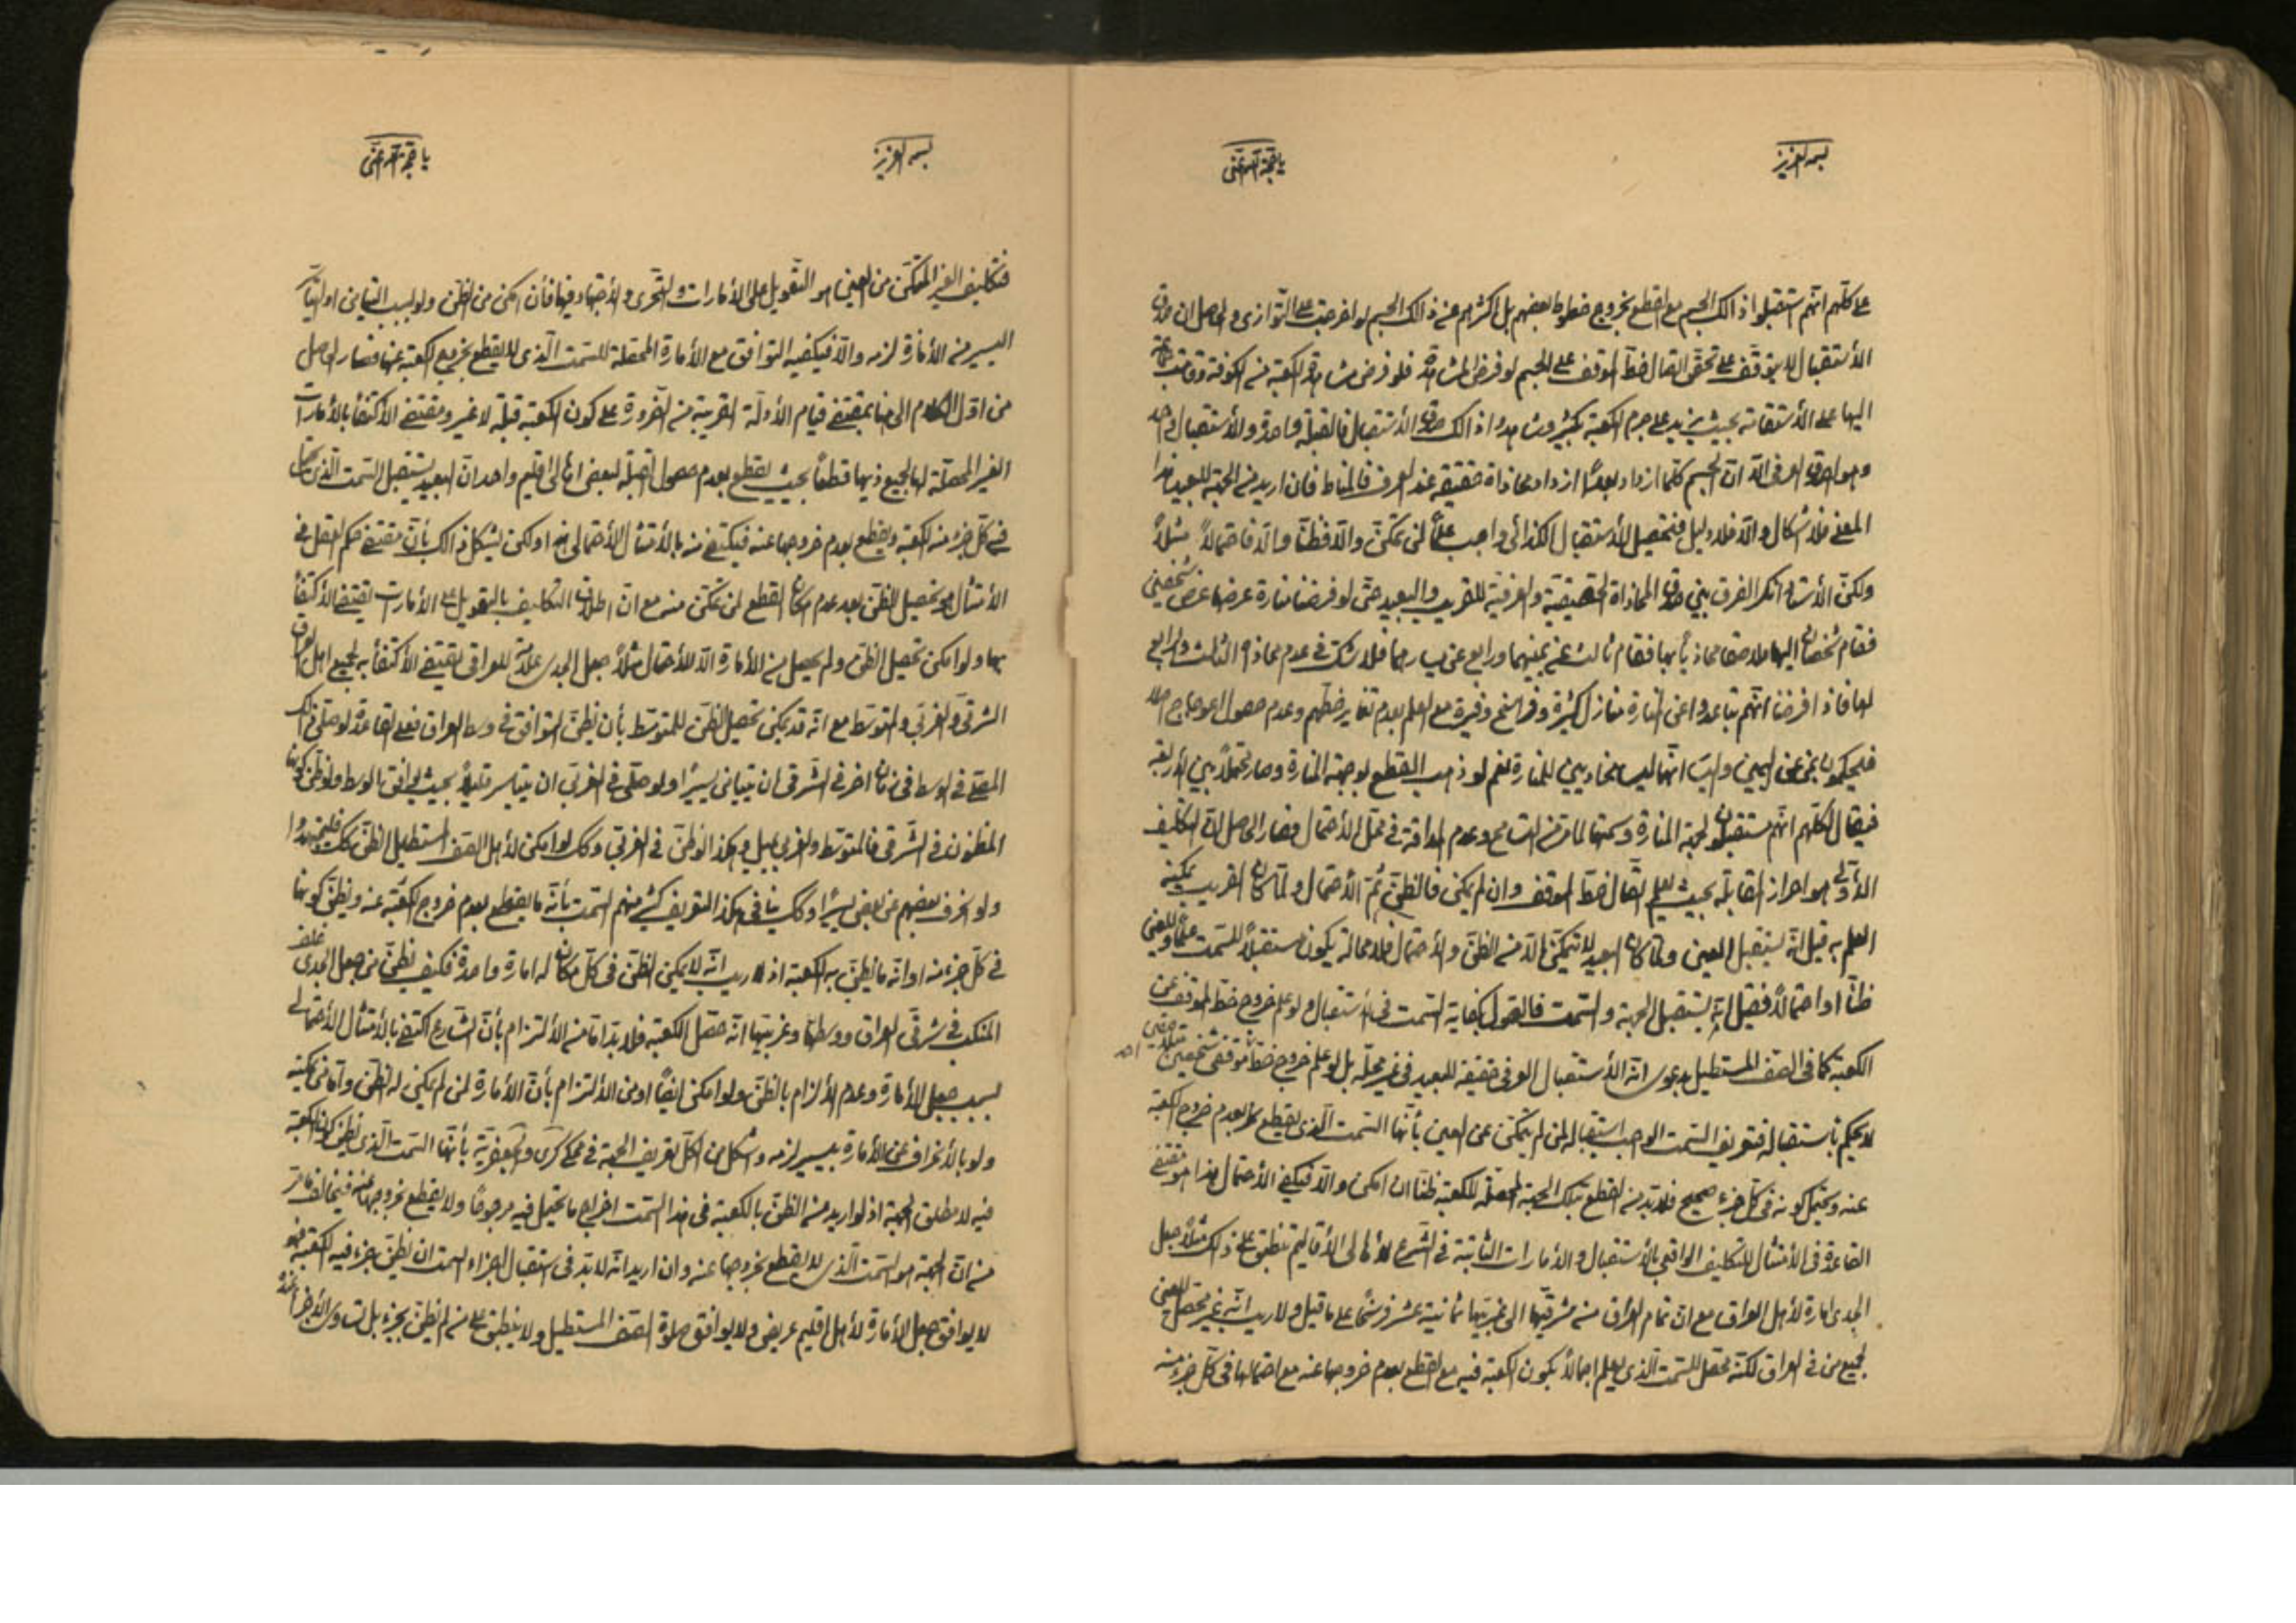 بسم العزيز
يا حجة الله اغثنى
على كلهم انهم استقبلوا ذالك الجسم مع القطع بخروج خطوط بعضهم بل اكثرهم عن ذالك الجسم لو اخرجت على التوازى والحاصل ان صدق
الأستقبال لا يتوقف على تحقق اتصال خط الموقف على الجسم لو فرض المشاهدة فلو فرض مشاهدة الكعبة من الكوفة ووقف
اليها على الأستقامة بحيث يزيد على جرم الكعبة بكثير وشاهدوا ذالك صدق الأستقبال فالقبلة واحدة والأستقبال واحد
وهو الصدق العرفى الا ان الجسم كلما ازداد بعدًا ازداد محاذاة حقيقة عند العرف فالمناط فان اريد من الجهة للبعيد هذا
المعنى فلا اشكال والا فلا دليل فتحصيل الأستقبال الكذائى واجب علمًا لمن تمكن والا فظنًا والا فاحتمالاً مثلاً
ولكن الأستاد انكر الفرق بين صدق المحاذاة الحقيقية والعرفية للقريب والبعيد حتى لو فرضنا منارة عرضها عرض شخصين
فقام شخصان اليها ملاصقا محاذيا بها فقام ثالث عن يمينهما ورابع عن يسارهما فلا شك فى عدم محاذاة الثالث والرابع
لها فاذا فرضنا انهم تباعدوا عن المنارة منازل كثيرة وفراسخ وفيرة مع العلم بعدم تغاير خطهم وعدم حصول اعوجاج اصلا
فيحكمون بمن عن اليمين واليسار انهما ليسا محاذيين للمنارة نعم لو ذهب القطع بوجهة المنارة وصار محتملاً بين الأربعة
فيقال لكلهم انهم مستقبلون لجهة المنارة وسمتها لما مر من التسامح وعدم المداقة فى محتمل الأحتمال فصار الحاصل ان التكليف
الأولى هو احراز المقابلة بحيث يعلم اتصال خط الموقف وان لم يكن فالظن ثم الأحتمال ولما كان القريب يمكنه
العلم به قيل انه يستقبل العين ولما كان البعيد لا يتمكن الا من الظن والأحتمال فلا محالة يكون مستقبلاً للسمت علمًا وللعين
ظنًا او احتمالاً فقيل انه يستقبل الجهة والسمت فالقول بكفاية السمت فى الأستقبال ولو علم خروج خط الموقف عن
الكعبة كما فى الصف المستطيل بدعوى انه الأستقبال العرفى حقيقة للبعيد فى غير محله بل لو علم خروج خط موقف شخصين
لا يحكم باستقباله فتعريف السمت الواجب استقباله لمن لم يتمكن عن العين بأنها السمت الذى يقطع بعدم خروج الكعبة
عنه ويحتمل كونه فى كل جزء صحيح فلا بد من القطع بتلك الجهة المحصلة للكعبة ظنًا ان امكن والا فيكفى الأحتمال هذا هو مقتضى
القاعدة فى الأمتثال للتكليف الواقعى بالأستقبال والأمارات الثابتة فى الشرع لأهالى الأقاليم تنطبق على ذالك مثلاً جعل
الجدى امارة لأهل العراق مع ان تمام العراق من مشرقها الى مغربها ثمانية عشر فرسخًا على ما قيل ولا ريب انه غير محصل للعين
لجميع من فى العراق لكنه محصل للسمت الذى يعلم اجمالاً بكون الكعبة فيه مع القطع بعدم خروجها عنه مع احتمالها فى كل جزء منه
بسم العزيز
يا حجة الله اغثنى
فتكليف الغير المتمكن من العين هو التعويل على الأمارات والتحرى والأجتهاد فيها فأن امكن من الظن ولو بسبب التيامن او التياسر
اليسير من الأمارة لزمه والا فيكفيه التوافق مع الأمارة المحصلة للسمت الذى لا يقطع بخروج الكعبة عنها فصار الحاصل
من اول الكلام الى هنا بمقتضى قيام الأدلة القريبة من الضرورة على كون الكعبة قبلة لا غير ومقتضى الأكتفاء بالأمارات
الغير المحصلة لها لجميع ذيها قطعًا بحيث يقطع بعدم حصول القبلة لبعض اهالى اقليم واحد ان البعيد يستقبل السمت الذى يحتمل
فى كل جزء منه الكعبة ويقطع بعدم خروجها عنه فيكتفى منه بالأمتثال الأحتمالى هذا ولكن يشكل ذالك بأن مقتضى حكم العقل فى
الأمتثال هو تحصيل الظن بعد عدم امكان القطع لمن تمكن منه مع ان اطلاق التكليف بالتعويل على الأمارات يقتضى الأكتفاء
بها ولو امكن تحصيل الظن ولم يحصل من الأمارة الا الأحتمال مثلاً جعل الجدى علامة للعراقى يقتضى الأكتفاء به لجميع اهل العراق
الشرقى والغربى والمتوسط مع انه قد يمكن تحصيل الظن للمتوسط بأن يظن التوافق فى وسط العراق فعلى القاعدة لو صلى ذالك
المصلى فى الوسط فى زمان اخر فى الشرقى ان يتيامن يسيرًا ولو صلى فى الغربى ان يتياسر قليلاً بحيث يوافق بالوسط ولو ظن كونها
المظنون فى الشرقى فالمتوسط والغربى يميل وهكذا لو ظن فى الغربى وكك لو امكن لأهل الصف المستطيل الظن كك فليجتهدوا
ولو انحرف بعضهم عن بعض يسيرًا وكك ينافى هكذا التعريف كثير منهم السمت بأنه ما يقطع بعدم خروج الكعبة عنه ويظن كونها
فى كل جزء منه او انه ما يظن به الكعبة اذ لا ريب انه لا يمكن الظن فى كل مكان له امارة واحدة فكيف يظن من جعل الجدى خلف
المنكب فى شرقى العراق ووسطها وغربيها انه حصل الكعبة فلا بد اما من الألتزام بأن الشارع اكتفى بالأمتثال الأحتمالى
بسبب جعل الأمارة وعدم الألزام بالظن ولو امكن ايضًا او من الألتزام بأن الأمارة لمن لم يمكن له الظن واما من يمكنه
ولو بالأنحراف عن الأمارة بيسير لزمه واشكل من الكل تعريف الجهة فى محكى كرى والجعفرية بأنها السمت الذى يظن كون الكعبة
فيه لا مطلق الجهة اذ لو اريد منه الظن بالكعبة فى هذا السمت اخرج ما يحتمل فيه مرجوحًا ولا يقطع بخروجها عنه فيخالف ما مر
من ان الجهة هو السمت الذى لا يقطع بخروجها عنه وان اريد انه لا بد فى استقبال اجزاء السمت ان يظن بجزء فيه الكعبة فهو
لا يوافق جعل الأمارة لأهل اقليم عريض ولا يوافق صلوة الصف المستطيل ولا ينطبق على من لم يظن بجزء بل تساوى الأجزاء عنده